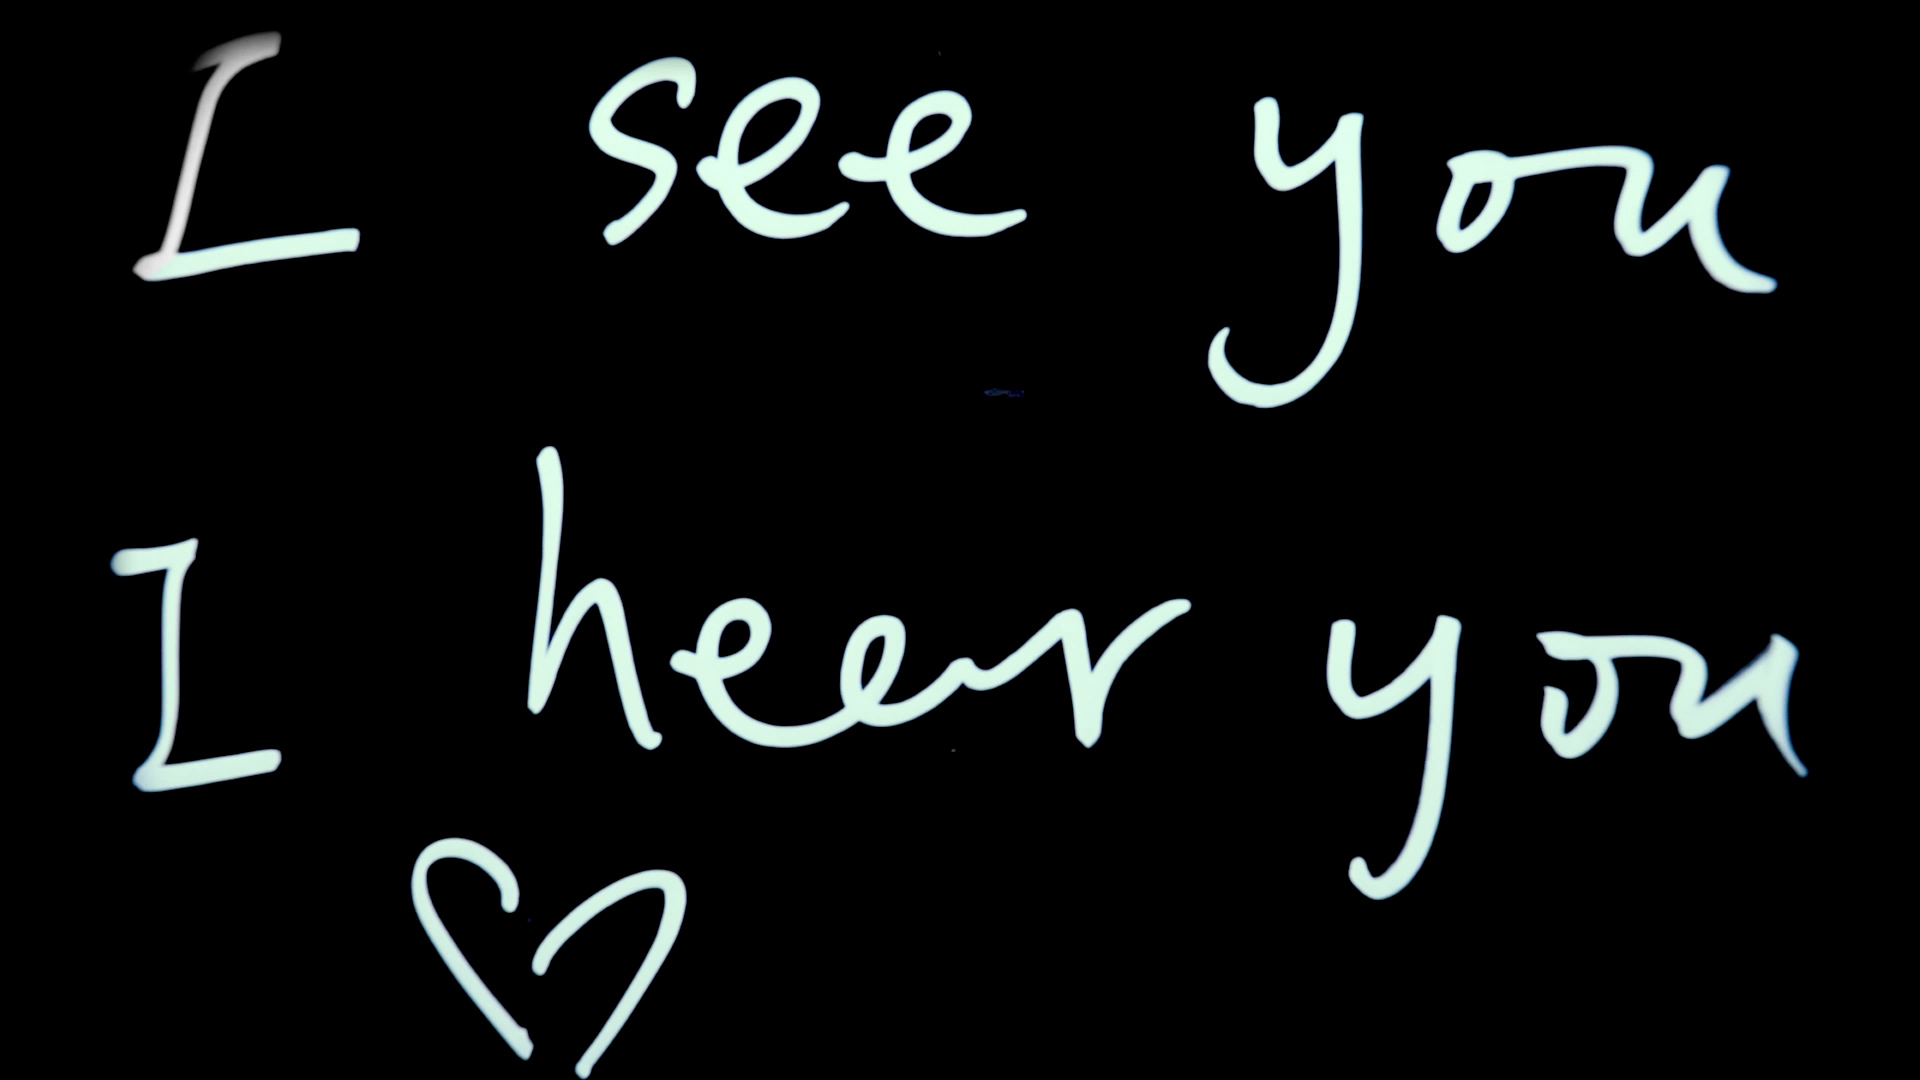 I see you
I hear you
♡